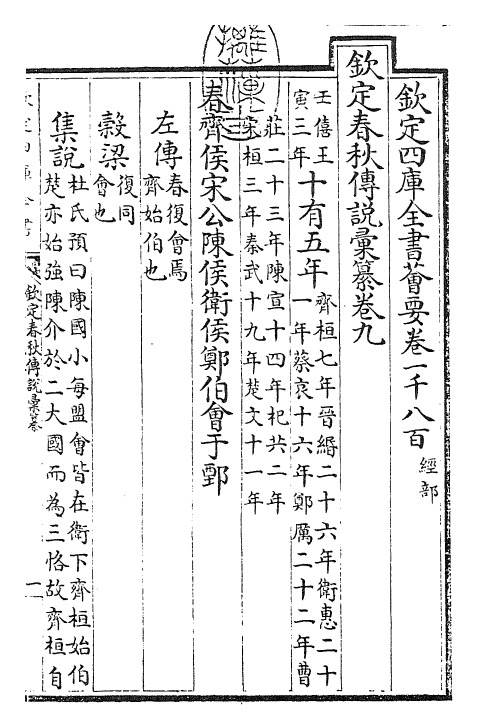 欽定四庫全書薈要卷一千八百 經部
欽定春秋傳說彙纂卷九
壬寅僖王三年十有五年齊桓七年晉緡二十六年衛惠二十
一年蔡哀十六年鄭厲二十二年曹
莊二十三年陳宣十四年杞共二年
宋桓三年秦武十九年楚文十一年
春齊侯宋公陳侯衛侯鄭伯會于鄄
左傳春復會焉
齊始伯也
穀梁復同
會也
集說杜氏預曰陳國小每盟會皆在衛下齊桓始伯
楚亦始強陳介於二大國而為三恪故齊桓自
欽定春秋傳說彙纂
一